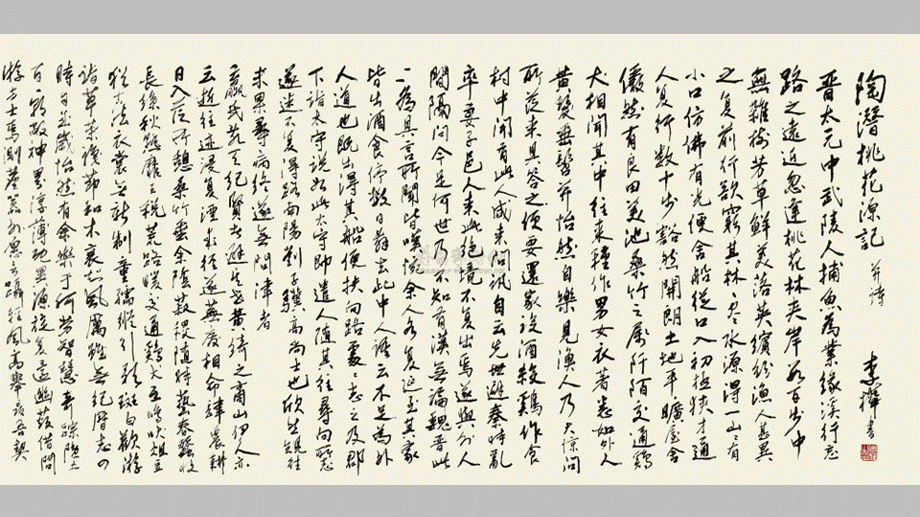 陶潜桃花源記 并诗 李鐸書
晋太元中武陵人捕鱼為業緣溪行忘
路之遠近忽逢桃花林夹岸数百步中
無雜樹芳草鮮美落英繽紛渔人甚異
之复前行欲窮其林尽水源得一山山有
小口仿佛有光便舍船從口入初极狭才通
人复行数十步豁然開朗土地平曠屋舍
儼然有良田美池桑竹之属阡陌交通鷄
犬相聞其中往来種作男女衣著悉如外人
黄髮垂髫并怡然自樂見漁人乃大惊问
所從来具答之便要還家设酒殺鷄作食
村中闻有此人咸来问訊自云先世避秦時亂
率妻子邑人来此絶境不复出焉遂與外人
間隔问今是何世乃不知有漢無論魏晋此
一為具言所聞皆嘆惋余人各复延至其家
皆出酒食停数日辞去此中人語云不足為外
人道也既出得其船便扶向路處處志之及郡
下诣太守说如此太守即遣人随其往尋向所志
遂迷不复得路南陽劉子驥高尚士也欣然規往
未果尋病终遂無问津者
嬴氏乱天纪賢者避其世黄绮之商山伊人亦
云逝往迹浸复湮来径遂蕪廢相命肄農耕
日入從所憩桑竹垂余陰菽稷随時藝春蠶收
長絲秋熟靡王税荒路曖交通鷄犬互鳴吠俎豆
犹古法衣裳無新制童孺縱行歌斑白歡游
诣草荣识節和木衰知風厲雖無纪曆志四
時自成歲怡然有余樂于何劳智慧奇踪隐五
百一朝敞神界淳薄既異源旋复還幽蔽借问
游方士焉測塵囂外愿言躡輕風高舉尋吾契